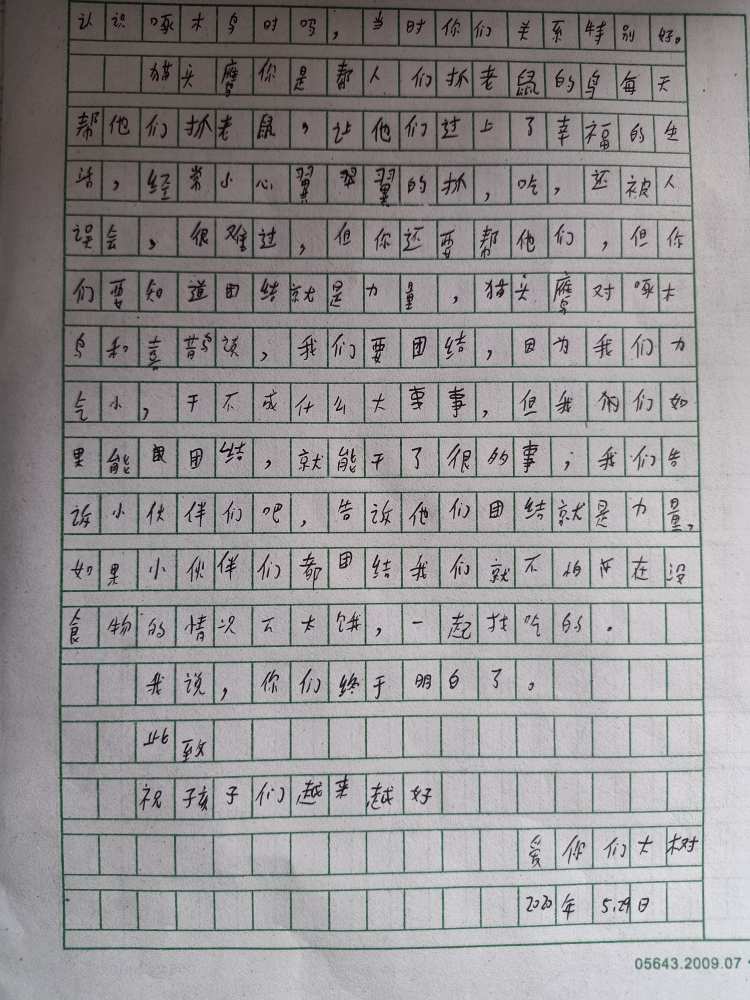 认识啄木鸟时吗，当时你们关系特别好。
猫头鹰你是帮人们抓老鼠的鸟每天
帮他们抓老鼠，让他们过上了幸福的生
活，经常小心翼翼翼的抓，吃，还被人
误会，很难过，但你还要帮他们，但你
们要知道团结就是力量，猫头鹰对啄木
鸟和喜鹊说，我们要团结，因为我们力
气小，干不成什么大事事，但我们如
果能团结，就能干了很的事；我们告
诉小伙伴们吧，告诉他们团结就是力量，
如果小伙伴们都团结我们就不怕在没
食物的情况下太饿，一起找吃的。
我说，你们终于明白了。
此致
祝孩子们越来越好
爱你们大树
2020年5.29日
05643.2009.07